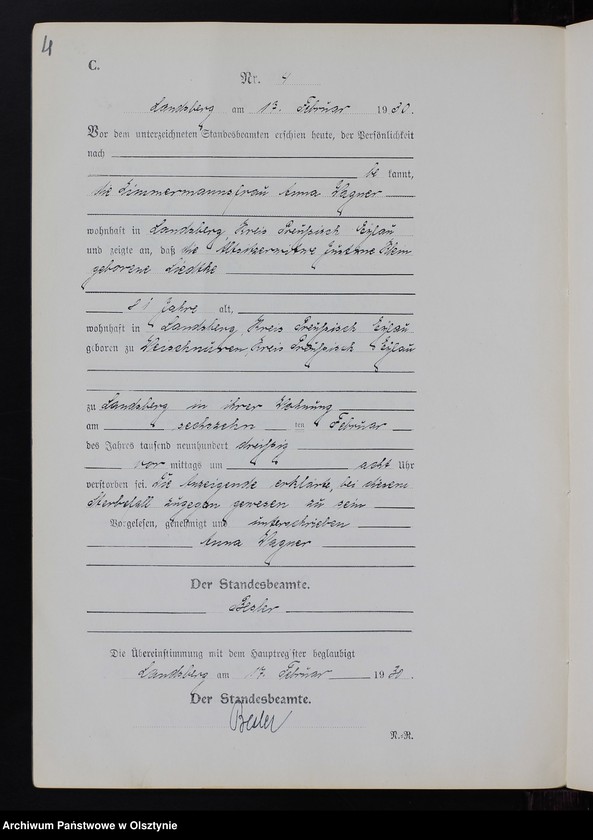 4
C.
Nr. 4
Landsberg am 13. Februar 1930.
Vor dem unterzeichneten Standesbeamten erschien heute, der Persönlichkeit
nach
be kannt,
die Zimmermannsfrau Anna Wagner
wohnhaft in Landsberg, Kreis Preußisch Eylau
und zeigte an, daß die Altsitzerwitwe Justine Klein
geborene Liedtke
81 Jahre alt,
wohnhaft in Landsberg, Kreis Preußisch Eylau
geboren zu Kreis Preußisch Eylau
zu Landsberg in ihrer Wohnung
am sechszehn ten Februar
des Jahres tausend neunhundert dreißig
vor mittags um acht Uhr
verstorben sei. Die Anzeigende erklärte, bei diesem
Sterbefall zugegen gewesen zu sein
Vorgelesen, genehmigt und unterschrieben
Anna Wagner
Der Standesbeamte.
Besler
Die Übereinstimmung mit dem Hauptregister beglaubigt
Landsberg am 17. Februar 1930.
Der Standesbeamte.
Besler
N.-R.
Archiwum Państwowe w Olsztynie